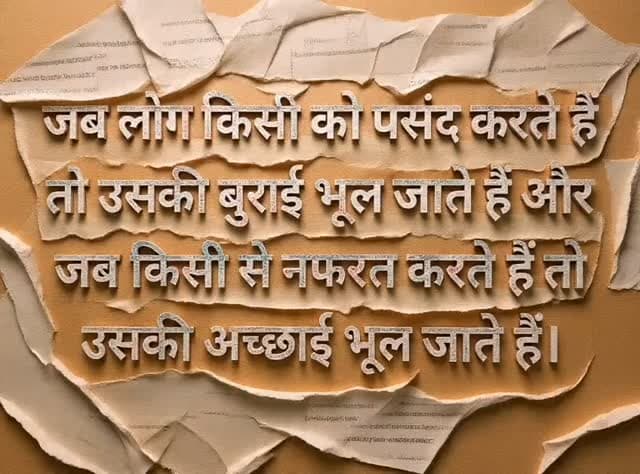 जब लोग किसी को पसंद करते हैं
तो उसकी बुराई भूल जाते हैं और
जब किसी से नफरत करते हैं तो
उसकी अच्छाई भूल जाते हैं।